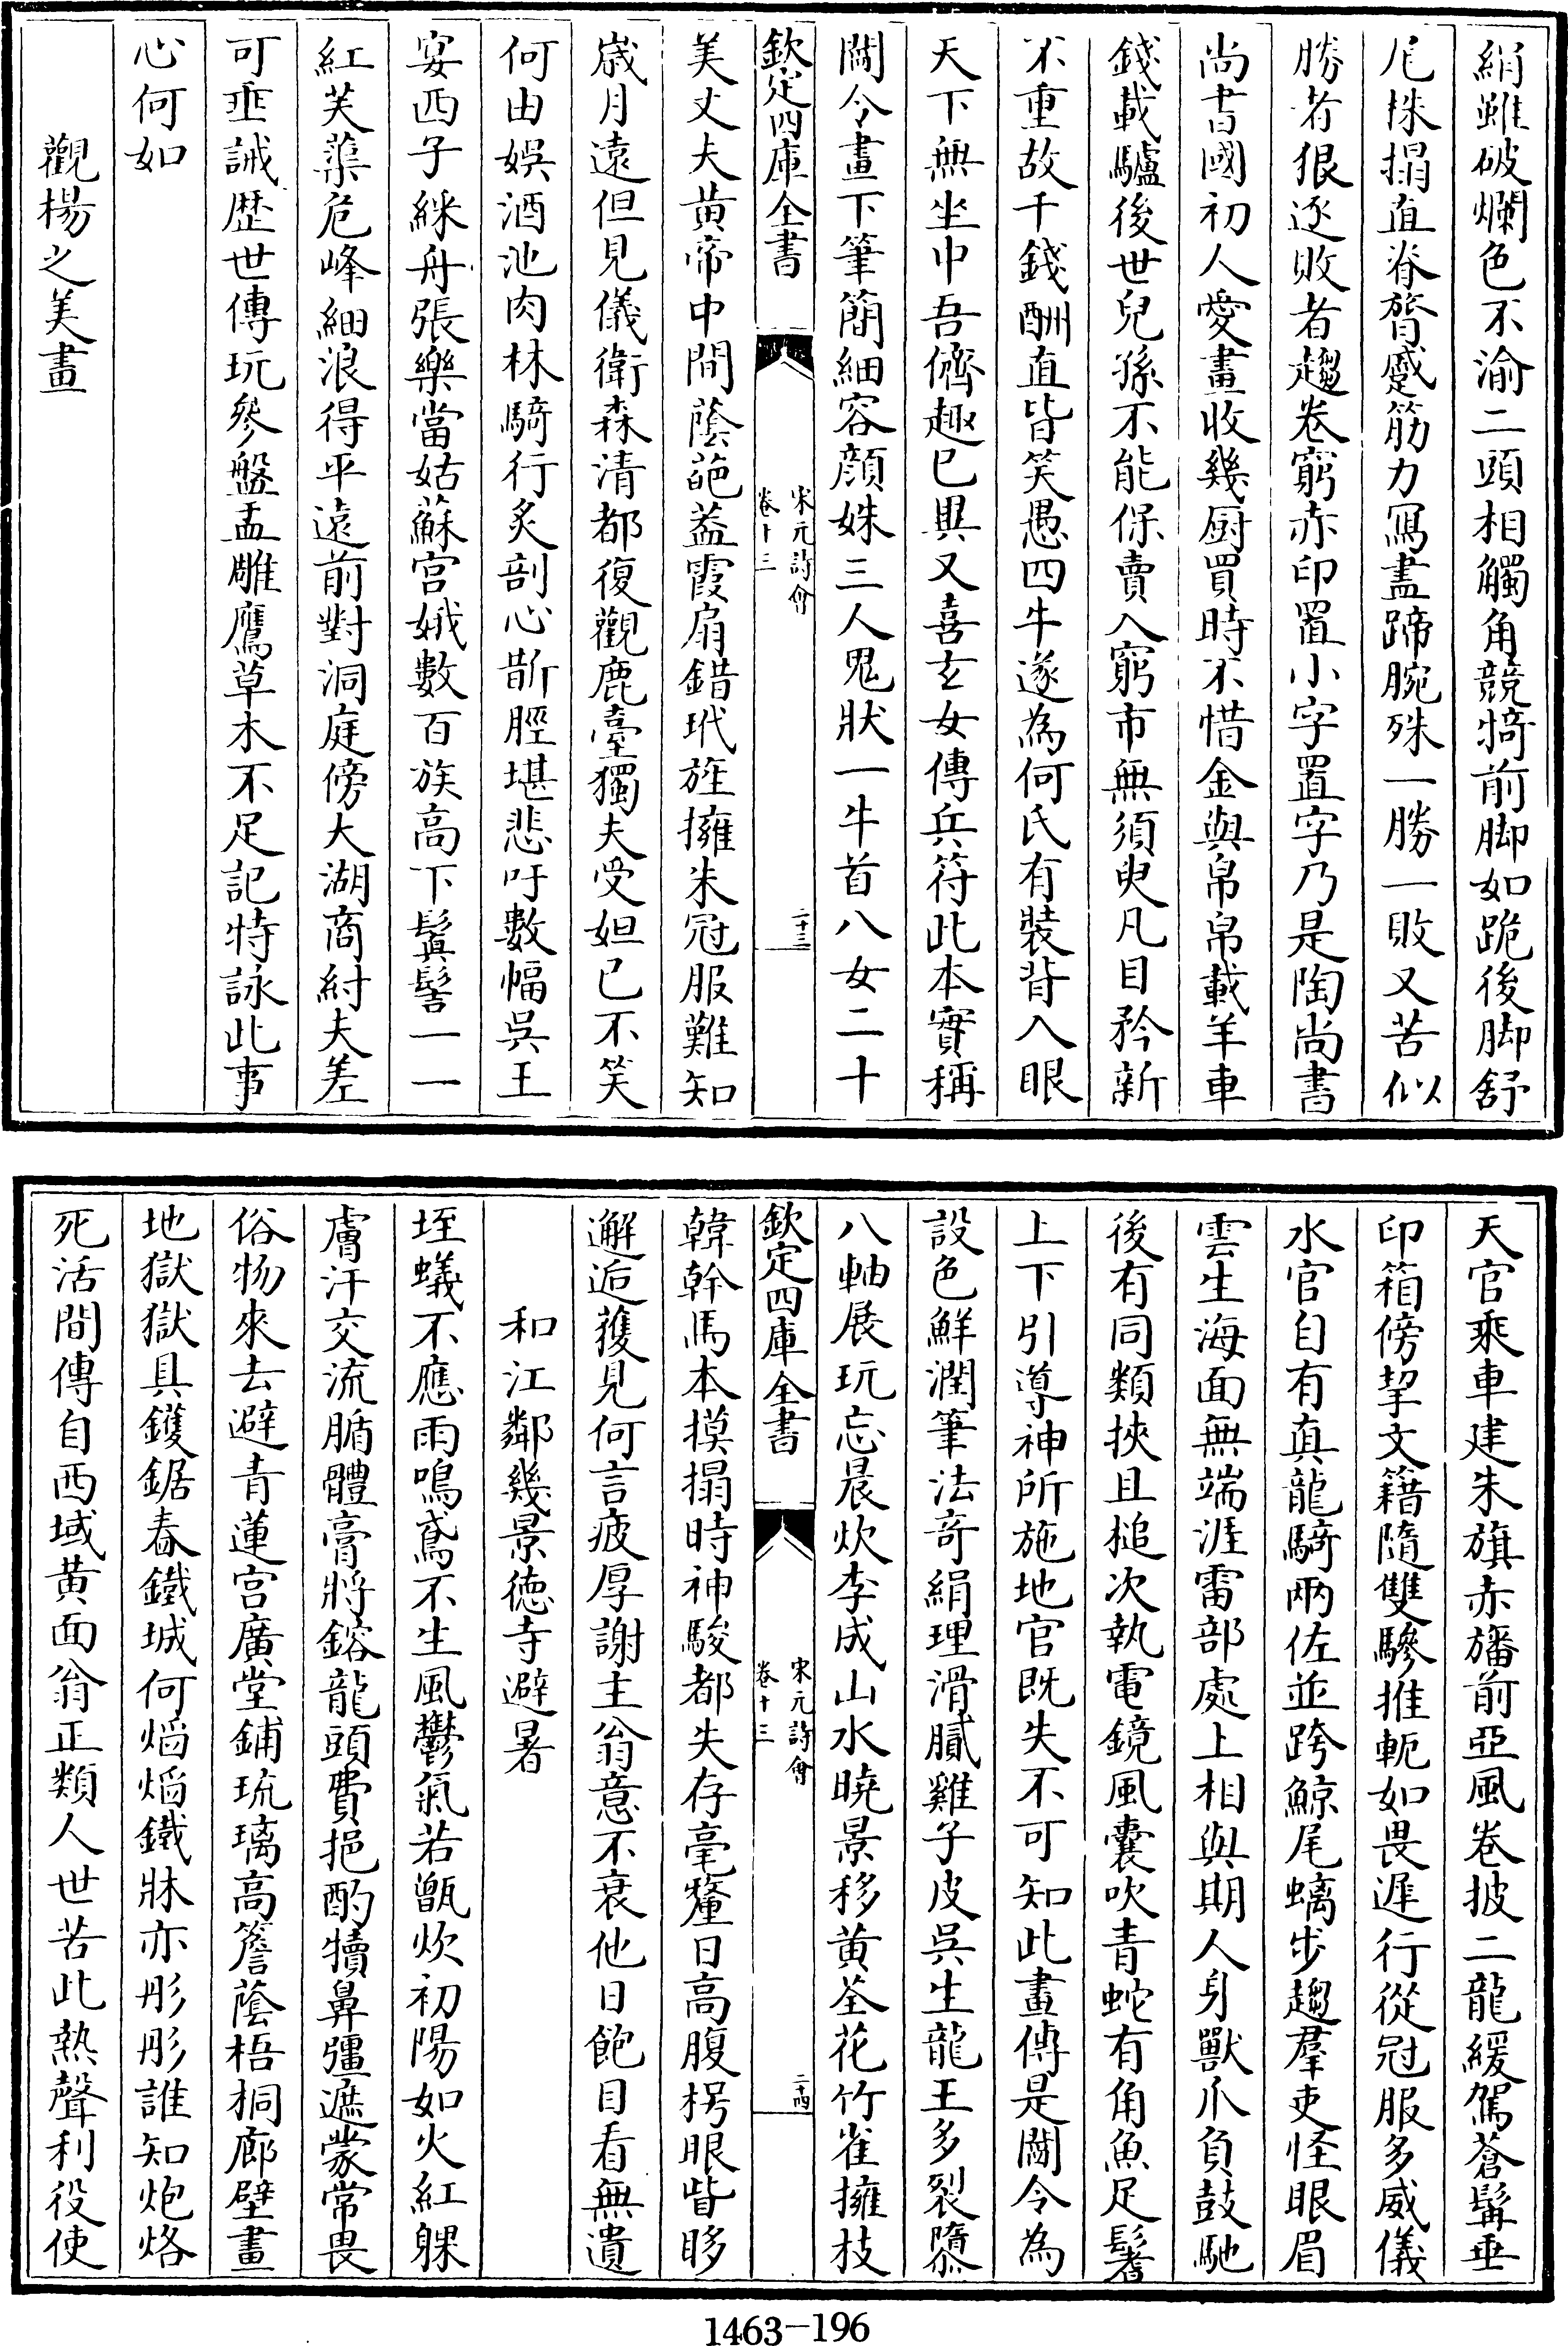 絹雖破爛色不渝二頭相觸角競犄前脚如跪後脚舒
尾株搨直脊膂蹙筋力冩盡蹄腕殊一勝一敗又苦似
勝者狠逐敗者趨卷窮赤印置小字置字乃是陶尚書
尚書國初人愛畫收幾厨買時不惜金與帛帛載羊車
錢載驢後世兒孫不能保賣入窮市無須臾凡目矜新
不重故千錢酬直皆笑愚四牛遂為何氏有裝背入眼
天下無坐中吾儕趣已興又喜玄女傳兵符此本實稱
闗令畫下筆簡細容顔姝三人鬼狀一牛首八女二十
欽定四庫全書
宋元詩會
卷十三
二十三
美丈夫黄帝中間蔭葩葢霞扇錯玳旌擁朱冠服難知
歲月遠但見儀衛森清都復觀鹿臺獨夫受妲已不笑
何由娯酒池肉林騎行炙剖心斮脛堪悲吁數幅呉王
宴西子綵舟張樂當姑蘇宫娥數百族高下鬒髻一一
紅芙蕖危峰細浪得平遠前對洞庭傍大湖商紂夫差
可垂誡歴世傳玩參盤盂雕鷹草木不足記特詠此事
心何如
觀楊之美畫
天官乘車建朱旗赤旛前亞風卷披二龍緩駕蒼髯垂
印箱傍挈文籍隨雙驂推軛如畏遲行從冠服多威儀
水官自有真龍騎兩佐並跨鯨尾螭步趨羣吏怪眼眉
雲生海面無端涯雷部處上相與期人身獸爪負鼓馳
後有同類挾且槌次執電鏡風囊吹青蛇有角魚足鬐
上下引導神所施地官既失不可知此畫傳是闗令為
設色鮮潤筆法奇絹理滑膩雞子皮呉生龍王多裂隳
八軸展玩忘晨炊李成山水曉景移黄荃花竹雀擁枝
欽定四庫全書
宋元詩會
卷十三
二十四
韓幹馬本摸搨時神駿都失存毫釐日高腹枵眼眥眵
邂逅獲見何言疲厚謝主翁意不衰他日飽目看無遺
和江鄰幾景徳寺避暑
垤蟻不應雨鳴鳶不生風鬱氣若甑炊初陽如火紅躶
膚汗交流腯體膏將鎔龍頭費挹酌犢鼻彊遮蒙常畏
俗物來去避青蓮宫廣堂鋪琉璃高簷蔭梧桐廊壁畫
地獄獄具鑊鋸舂鐵城何焰焰鐵牀亦彤彤誰知炮烙
死活間傳自西域黄面翁正類人世苦此熱聲利役使
1463-196